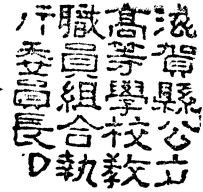 滋賀縣公立
髙等學校教
職員組合執
行委員長